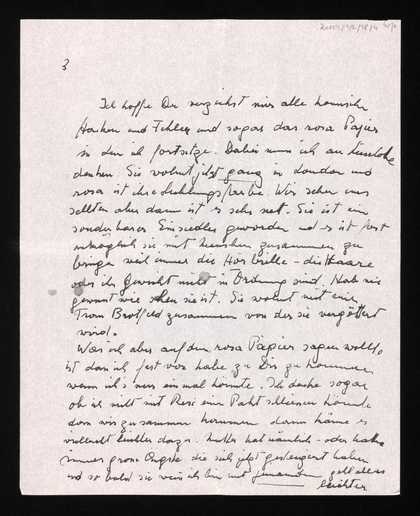 3
Ich hoffe Du verzeihst mir alle komische
Haken und Fehler und sogar das rosa Papier
in den ich fortsetze. Dabei muss ich an
denken. Sie wohnt jetzt ganz in London und
rosa ist ihre Lieblingsfarbe. Wir sehen uns
selten aber dann ist es sehr nett. Sie ist ein
sonderbarer Einsiedler geworden und es ist fast
unmöglich sie mit Menschen zusammen zu
bringen weil immer die Hör Brille - die Haare
oder ihr Gewicht nicht in Ordnung sind. Hab nie
gewusst wie sie ist. Sie wohnt mit einer
Frau zusammen von der sie vergöttert
wird.
Was ich aber auf dem rosa Papier sagen wollte
ist dass ich fest vor habe zu Dir zu kommen
wenn ich's nur einmal könnte. Ich dachte sogar
ob ich nicht mit Resi einen Pakt schliessen könnte
dass wir zusammen kommen dann käme es
vielleicht leichter dazu. hat nämlich - oder hatte
immer grosse Ängste die sich jetzt gesteigert haben
und so bald sie weiss ich bin mit jemandem geht alles
leichter